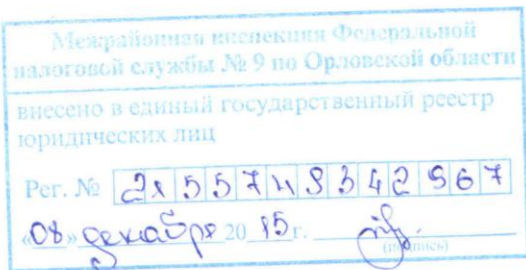 Межрайонная инспекция Федеральной
налоговой службы № 9 по Орловской области
внесено в единый государственный реестр
юридических лиц
Рег. №
«08» декабря 20 15 г.
(подпись)